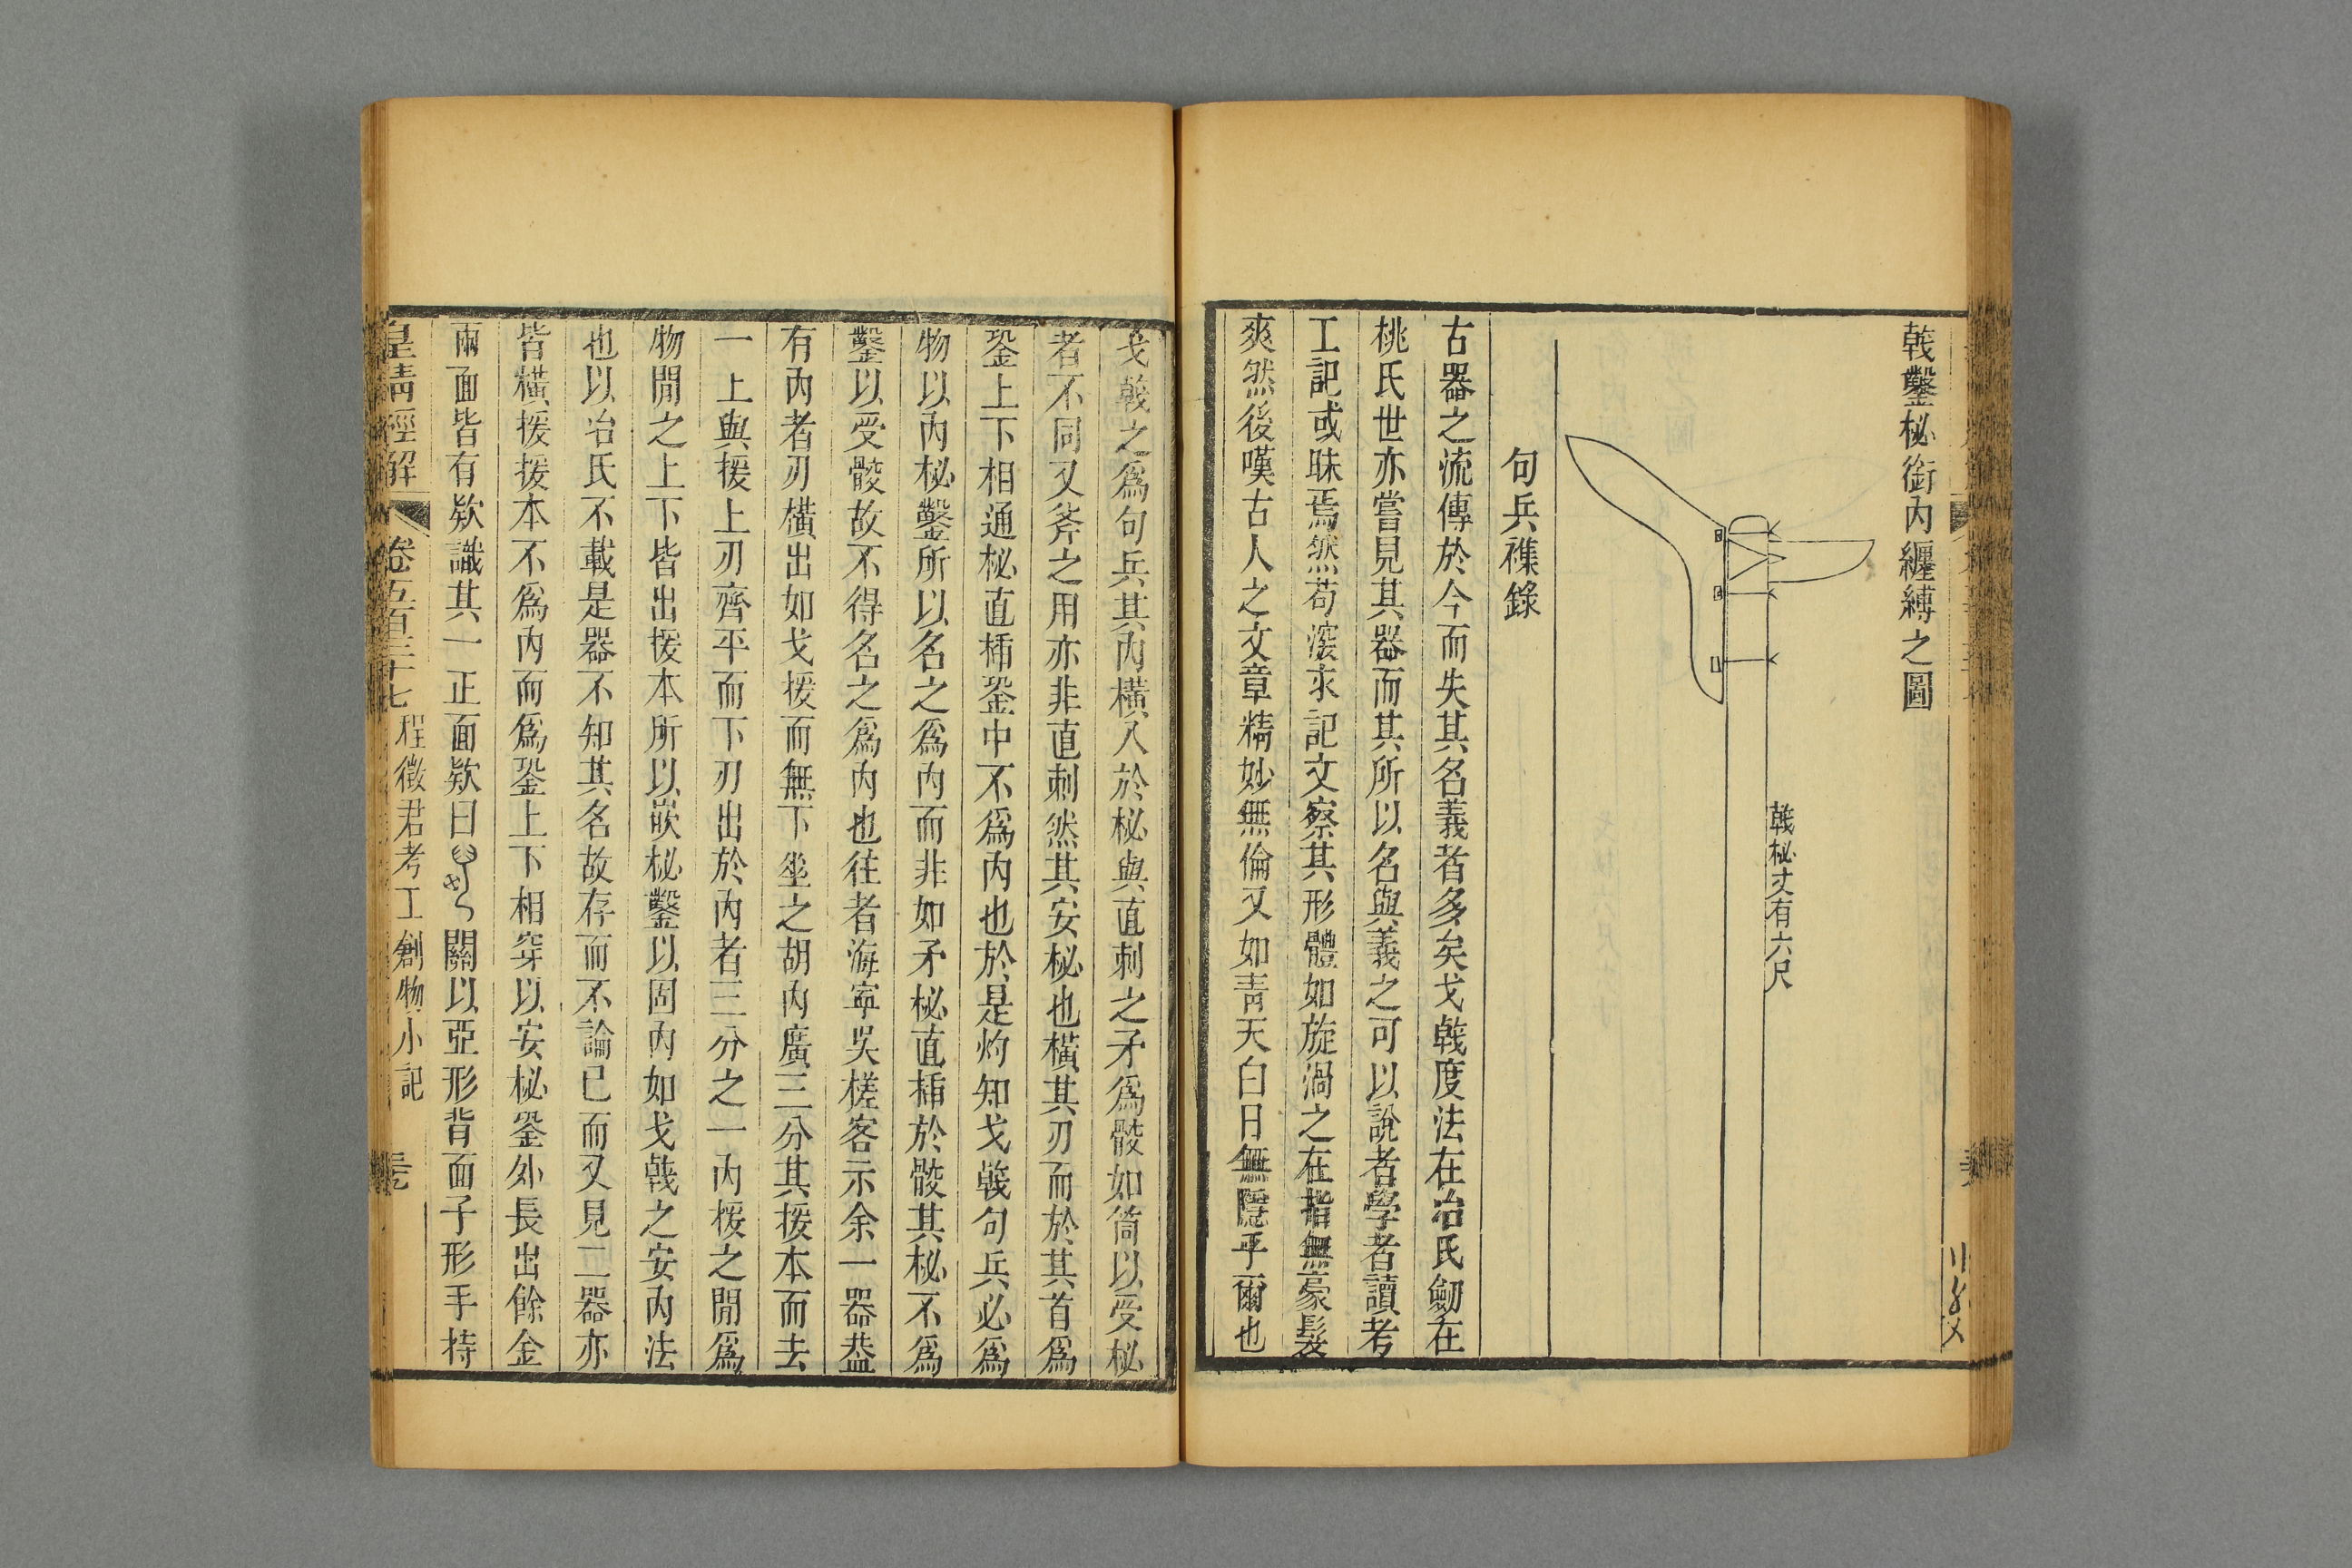 戟鑿柲銜內纏縛之圖
戟柲丈有六尺
句兵襍錄
古器之流傳於今而失其名義者多矣戈戟度法在冶氏劒在
桃氏世亦嘗見其器而其所以名與義之可以說者學者讀考
工記或昧焉然苟深求記文察其形體如旋渦之在指無豪髮
爽然後嘆古人之文章精妙無倫又如青天白日無隱乎爾也
戈戟之爲句兵其內橫入於柲與直刺之矛爲骹如筒以受柲
者不同又斧之用亦非直刺然其安柲也橫其刃而於其首爲
銎上下相通柲直插銎中不爲內也於是灼知戈戟句兵必爲
物以內柲鑿所以名之爲內而非如矛柲直插於骹其柲不爲
鑿以受骹故不得名之爲內也往者海寧吳槎客示余一器葢
有內者刃橫出如戈援而無下垂之胡內廣三分其援本而去
一上與援上刃齊平而下刃出於內者三分之一內援之閒爲
物閒之上下皆出援本所以嵌柲鑿以固內如戈戟之安內法
也以冶氏不載是器不知其名故存而不論已而又見二器亦
皆橫援援本不爲內而爲銎上下相穿以安柲銎外長出餘金
兩面皆有欵識其一正面欵曰關以亞形背面子形手持
皇淸經解
卷五百三十七
程徵君考工創物小記